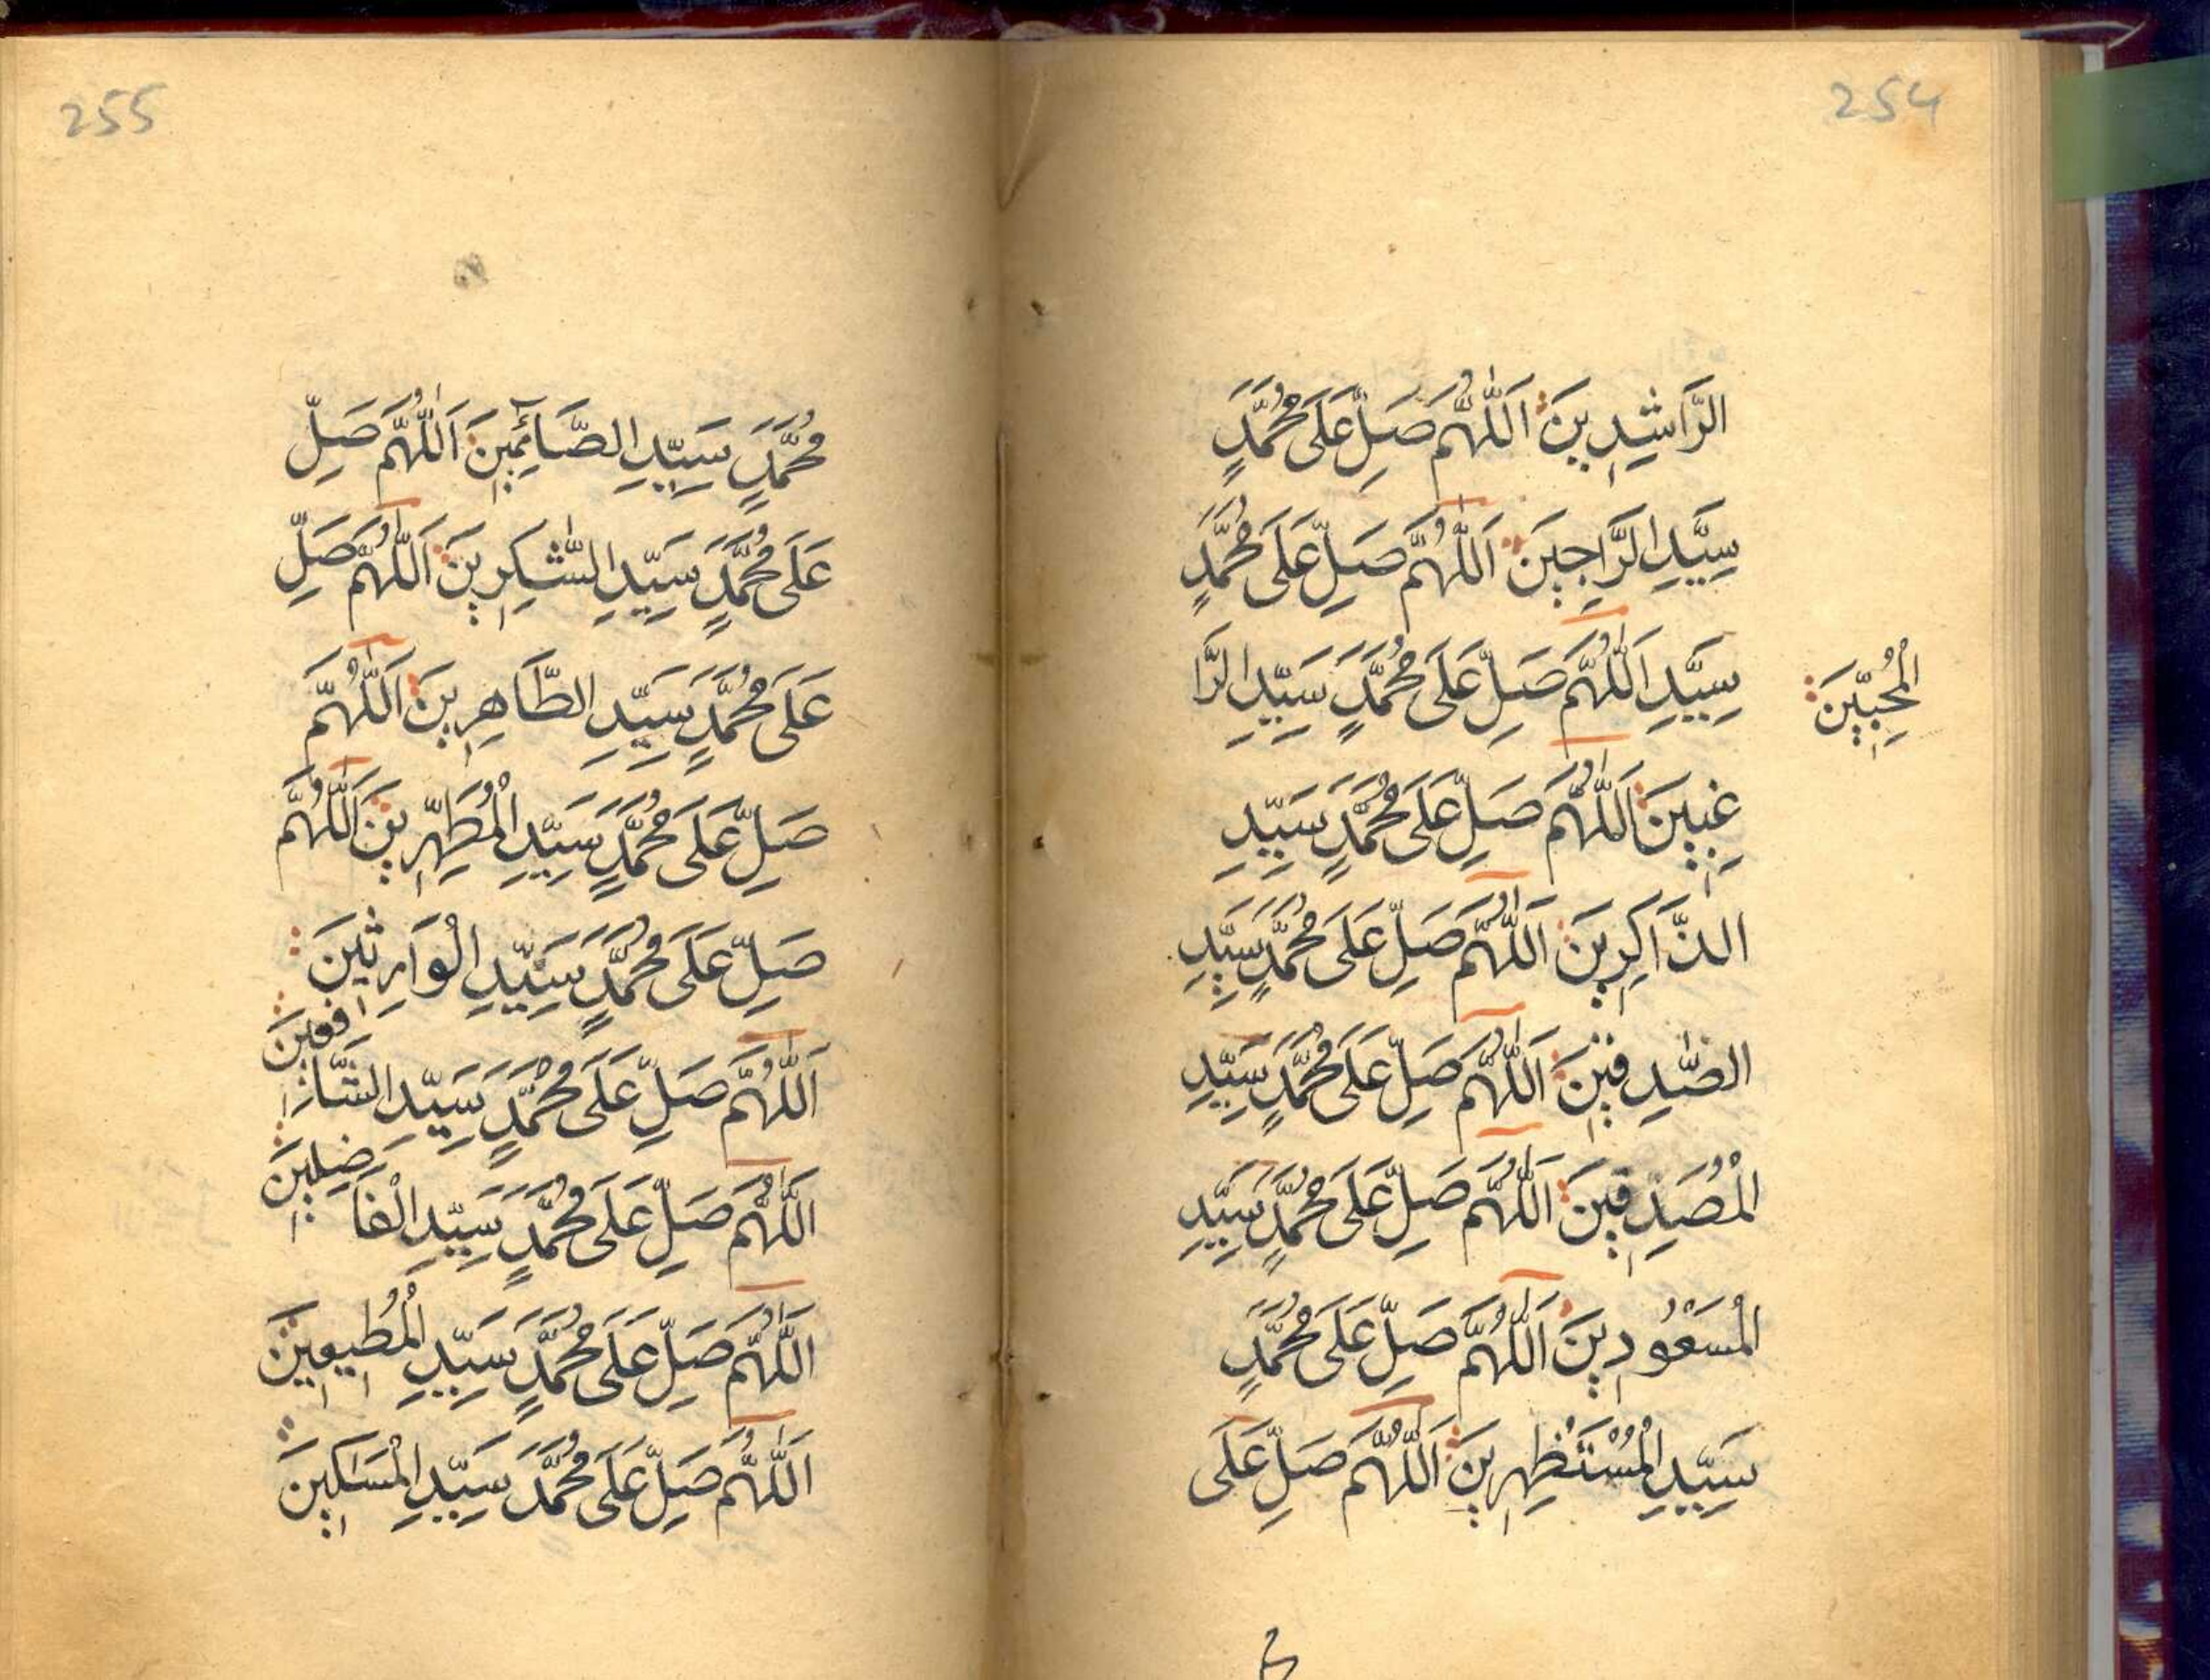 254
الرَّاشِدِينَ اَللّٰهُمَّ صَلِّ عَلَى مُحَمَّدٍ
سَيِّدِ الرَّاجِينَ اَللّٰهُمَّ صَلِّ عَلَى مُحَمَّدٍ
سَيِّدِ اَللّٰهُمَّ صَلِّ عَلَى مُحَمَّدٍ سَيِّدِ الرَّا
الْمُحِبِّينَ
غِبِينَ اَللّٰهُمَّ صَلِّ عَلَى مُحَمَّدٍ سَيِّدِ
الذَّاكِرِينَ اَللّٰهُمَّ صَلِّ عَلَى مُحَمَّدٍ سَيِّدِ
الصّٰدِقِينَ اَللّٰهُمَّ صَلِّ عَلَى مُحَمَّدٍ سَيِّدِ
الْمُصَدِقِينَ اَللّٰهُمَّ صَلِّ عَلَى مُحَمَّدٍ سَيِّدِ
الْمَسْعُودِينَ اَللّٰهُمَّ صَلِّ عَلَى مُحَمَّدٍ
سَيِّدِ الْمُسْتَظْهِرِينَ اَللّٰهُمَّ صَلِّ عَلَى
255
مُحَمَّدٍ سَيِّدِ الصَّآئِمِينَ اَللّٰهُمَّ صَلِّ
عَلَى مُحَمَّدٍ سَيِّدِ الشّٰكِرِينَ اَللّٰهُمَّ صَلِّ
عَلَى مُحَمَّدٍ سَيِّدِ الطَّاهِرِينَ اَللّٰهُمَّ
صَلِّ عَلَى مُحَمَّدٍ سَيِّدِ الْمُطَهِّرِينَ اَللّٰهُمَّ
صَلِّ عَلَى مُحَمَّدٍ سَيِّدِ الْوَارِثِينَ
اَللّٰهُمَّ صَلِّ عَلَى مُحَمَّدٍ سَيِّدِ الشَّافِعِينَ
اَللّٰهُمَّ صَلِّ عَلَى مُحَمَّدٍ سَيِّدِ الْفَاضِلِينَ
اَللّٰهُمَّ صَلِّ عَلَى مُحَمَّدٍ سَيِّدِ الْمُطِيعِينَ
اَللّٰهُمَّ صَلِّ عَلَى مُحَمَّدَ سَيِّدِ الْمَسَاكِينَ